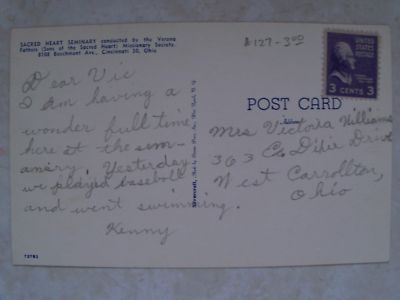 SACRED HEART SEMINARY conducted by the Verona
Fathers (Sons of the Sacred Heart) Missionary Society.
8108 Beechmont Ave., Cincinnati 30, Ohio
127-300
UNITED STATES
POSTAGE
3 CENTS 3
Dear Vic
I am having a
wonder full time
here at the sem-
anary. Yesterday
we played baseball
and went swimming.
Kenny
POST CARD
Mrs Victoria Williams
363 E. Dixie Drive
West Carrollton,
Ohio